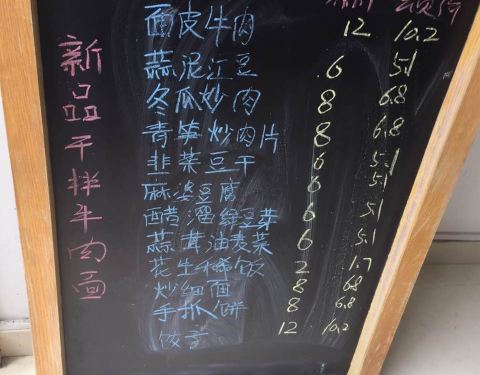 面皮牛肉 12 10.2
蒜泥江豆 6 5.1
冬瓜炒肉 8 6.8
青笋炒肉片 8 6.8
韭菜豆干 6 5.1
麻婆豆腐 6 5.1
醋溜绿豆芽 6 5.1
蒜茸油麦菜 6 5.1
花生稀饭 2 1.7
炒细面 8 68
手抓饼 8 6.8
饺子 12 10.2
新品干拌牛肉面